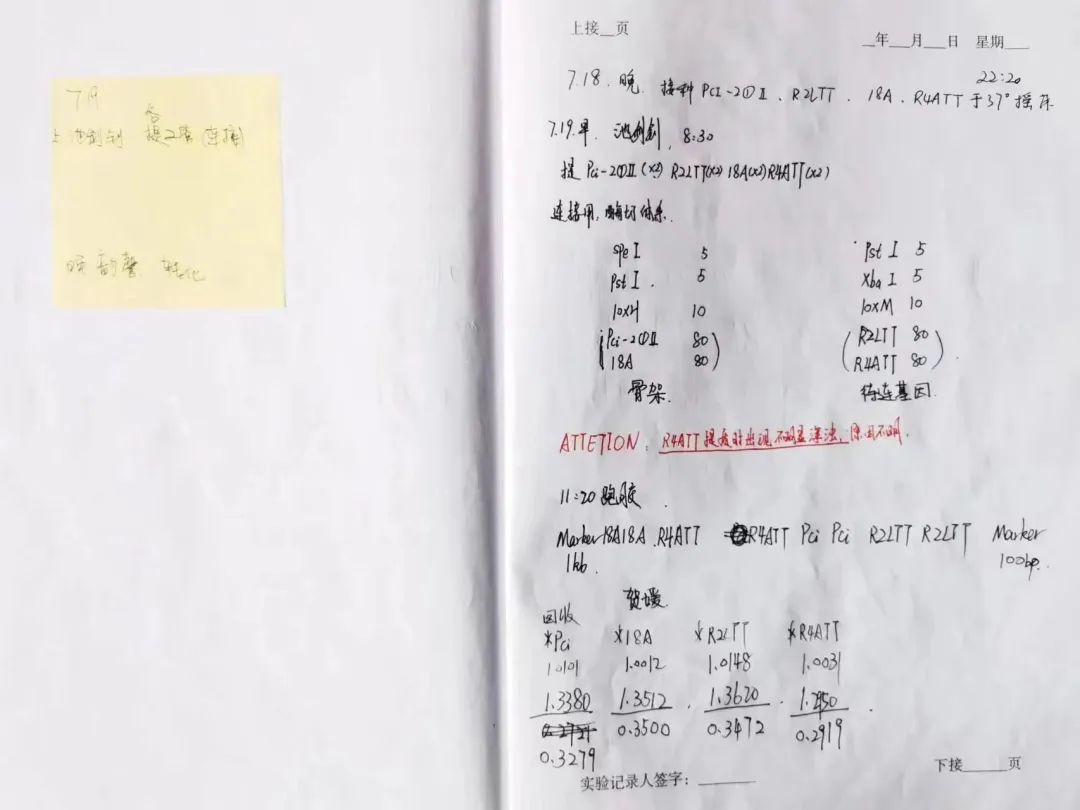 7.19
提质粒(连接)
转化
上接__页
__年___月___日 星期___
22:20
7.18.晚. 接种 Pci-2①Ⅱ、R2LTT、18A、R4ATT于37°摇床
7.19.早. 8:30
提 Pci-2①Ⅱ(x2) R2LTT(x2) 18A(x2) R4ATT(x2)
连接用,酶切体系.
speⅠ 5 PstⅠ 5
PstⅠ. 5 XbaⅠ 5
10xH 10 10xM 10
(Pci-2①Ⅱ 80) (R2LTT 80)
(18A 80) (R4ATT 80).
骨架. 待连基因.
ATTETION: R4ATT提质时出现不明显浑浊,原因不明.
11:20 跑胶.
Marker 18A 18A .R4ATT R4ATT Pci Pci R2LTT R2LTT Marker
1kb. 100bp.
回收
*Pci *18A *R2LTT *R4ATT
1.0101 1.0012 1.0148 1.0031
1.3380 1.3512 . 1.3620 . 1.2950 .
0.3500 0.3472 0.2919
0.3279
下接______页
实验记录人签字:________